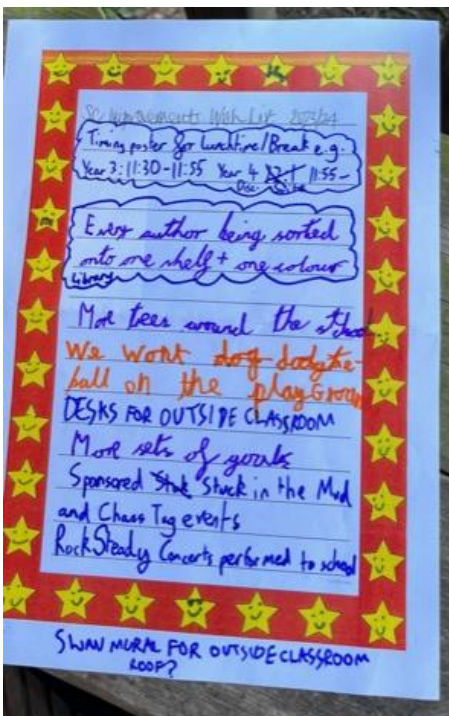 SC Improvements Wish List 2023/24
Timing poster for lunchtime/Break e.g.
Year 3: 11:30-11:55 Year 4 11:55-
Every author being sorted
onto one shelf + one colour
Library
More trees around the school
We wont dog dodgthe-
ball on the playGroun
DESKS FOR OUTSIDE CLASSROOM
More sets of goals
Sponsored Stuk Stuck in the Mud
and Chaos Tag events
RockSteady Concerts performed to school
SWAN MURAL FOR OUTSIDE CLASSROOM
ROOF?